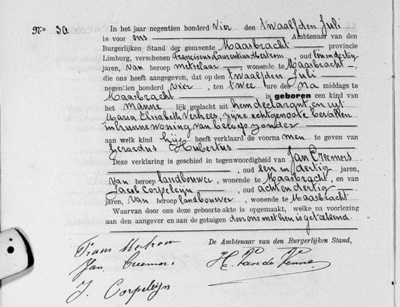 No 30.
In het jaar negentien honderd vier den twaalfden Juli
is voor ons Ambtenaar van den
Burgerlijken Stand der gemeente Maasbracht provincie
Limburg, verschenen Franciscus Laurentius oud
jaren, van beroep metselaar, wonende te Maasbracht
die ons heeft aangegeven, dat op den twaalfden Juli
negentien honderd vier, ten twee ure des na middags te
Maasbracht is geboren een kind van
het mannelijk geslacht uit hem declarant en uit
Maria Elisabeth Verheij, zijne echtgenoote
in hunne woning van beroep zonder
aan welk kind hij heeft verklaard de voornamen te geven van
Gerardus Hubertus
Deze verklaring is geschied in tegenwoordigheid van Jan Creemers
oud een en dertig jaren,
van beroep landbouwer, wonende te Maasbracht, en van
Jacob Corpeleijn, oud acht en dertig
jaren, van beroep landbouwer, wonende te Maasbracht
Waarvan door ons deze geboorteakte is opgemaakt, welke na voorlezing
aan den aangever en de getuigen door ons met hen is geteekend
De Ambtenaar van den Burgerlijken Stand,
Frans
Jan Creemers
H. Van de Venne
J. Corpeleijn